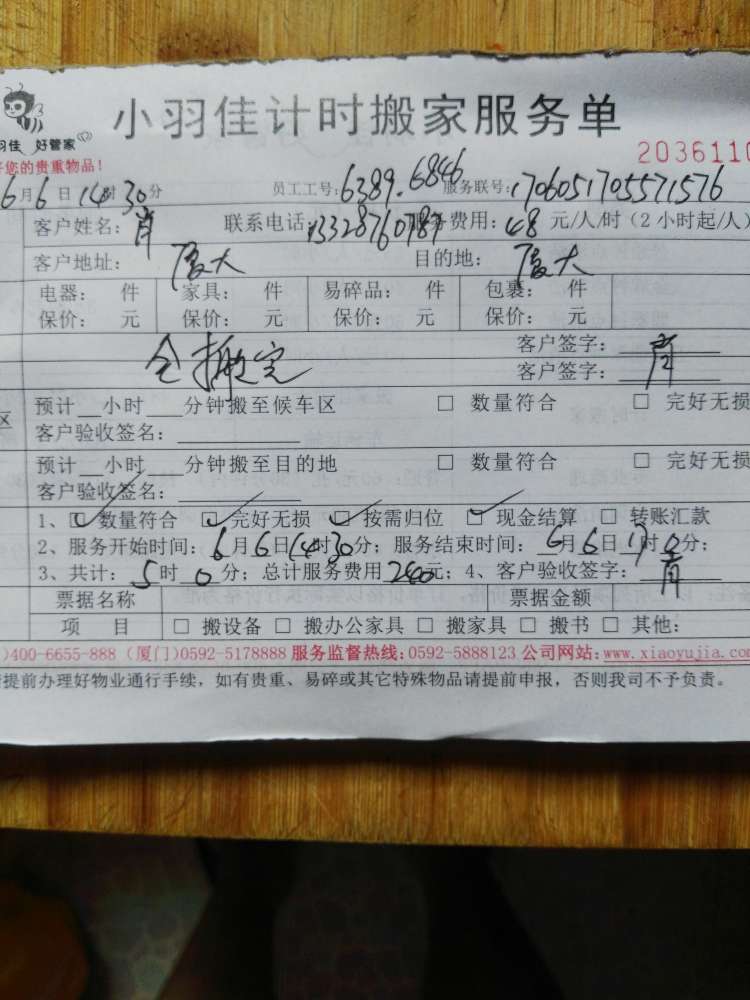 小羽佳计时搬家服务单
羽佳 好管家
好您的贵重物品!
2036110
6月6日14时30分 员工工号:6389.6846 服务联号:1706051705571576
客户姓名:肖 联系电话:13328760787 务费用:48 元/人/时(2小时起/人)
客户地址:厦大 目的地:厦大
电器: 件 家具: 件 易碎品: 件 包裹: 件
保价: 元 保价: 元 保价: 元 保价: 元
全搬完 客户签字:
客户签字: 肖
区 预计__小时___分钟搬至候车区 □ 数量符合 □ 完好无损
客户验收签名:
预计__小时 分钟搬至目的地 □ 数量符合 □ 完好无损
客户验收签名:
1、☑数量符合 ☑完好无损 ☑按需归位 ☑现金结算 □ 转账汇款
2、服务开始时间:6月6日14时30分;服务结束时间:6月6日17时0分;
3、共计:5时0分;总计服务费用240元;4、客户验收签字:肖
票据名称 票据金额
项 目 □ 搬设备 □ 搬办公家具 □ 搬家具 □ 搬书 □ 其他:
)400-6655-888 (厦门)0592-5178888 服务监督热线:0592-5888123 公司网站:www.xiaoyujia.com
提前办理好物业通行手续,如有贵重、易碎或其它特殊物品请提前申报,否则我司不予负责。